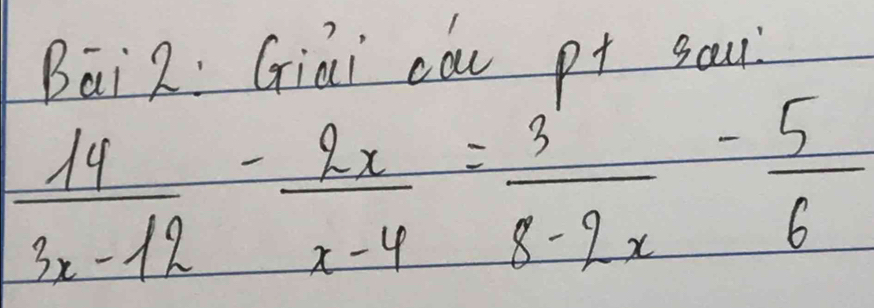 Bài 2: Giải các pt sau:
14/(3x-12) - 2x/(x-4) = 3/(8-2x) - 5/6